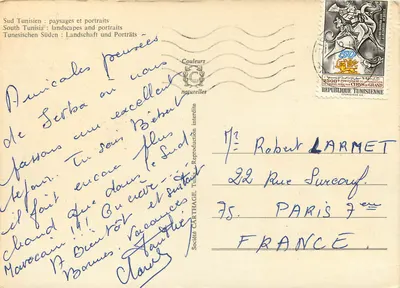 Sud Tunisien : paysages et portraits
South Tunisia : landscapes and portraits
Tunesischen Süden : Landschaft und Porträts
Couleurs
naturelles
Amicales pensées
de Jerba où nous
passons un excellent
séjour. Tu sais Bébert
il fait encore plus
chaud que dans le Sud
Marocain !!! On crève !
A Bientôt et surtout
Bonnes Vacances
Société CARTHAGE, Tunis, Reproduction interdite
REPUBLIQUE TUNISIENNE
Mr Robert LARMET
22 Rue Surcouf
75. PARIS 7eme
FRANCE.